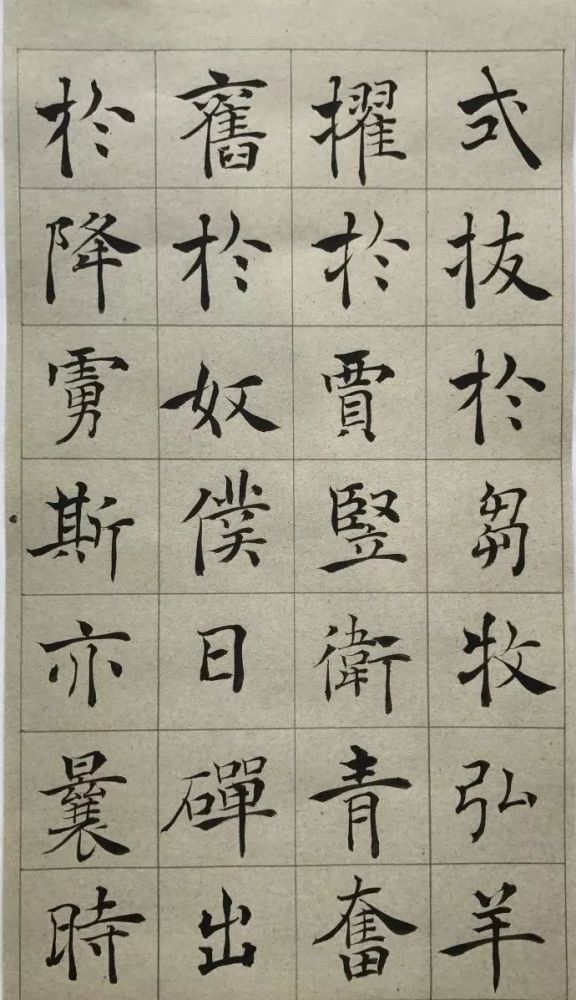 式拔於芻牧弘羊
擢於賈豎衛青奮
舊於奴僕日磾出
於降虜斯亦曩時